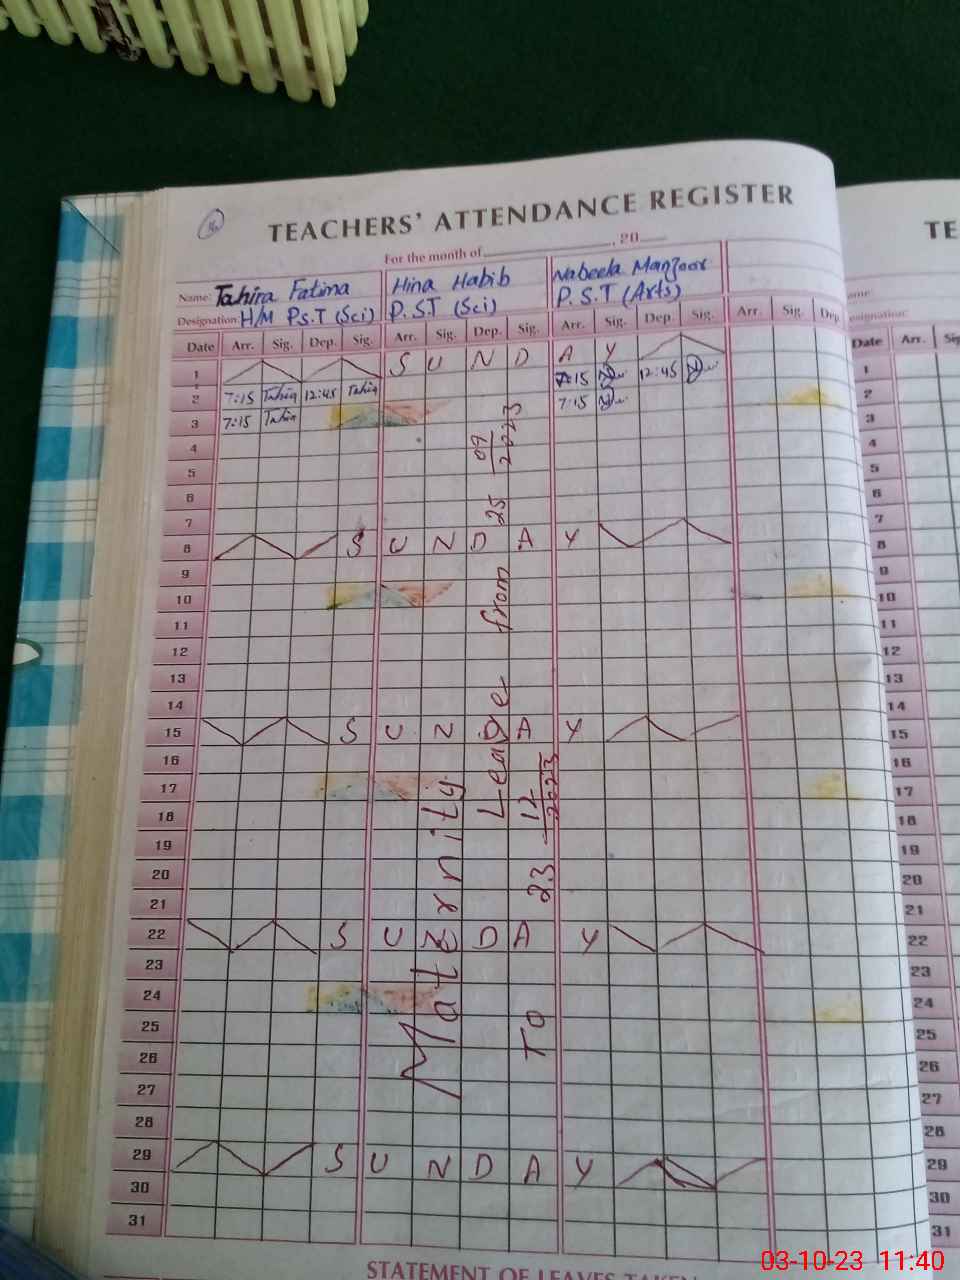 TEACHERS' ATTENDANCE REGISTER
For the month of , 20
Name: Tahira Fatima Hina Habib Nabeela Manzoor
Designation: H/M P.S.T (Sci) P.S.T (Sci) P.S.T (Arts)
Date Arr. Sig. Dep. Sig. Arr. Sig. Dep. Sig. Arr. Sig. Dep. Sig. Arr. Sig. Dep.
1 S U N D A Y
2 7:15 Tahira 12:45 Tahira 7:15 12:45
3 7:15 Tahira 7:15
4
5
6
7
8 S U N D A Y
9
10
11
12
13
14
15 S U N D A Y
16
17
18
19
20
21
22 S U N D A Y
23
24
25
26
27
28
29 S U N D A Y
30
31
Maternity
Leave from 25 09 2023
To 23 12 2023
STATEMENT OF LEAVES TAKEN
TE
ame:
esignation:
Date Arr. Sig
1
2
3
4
5
6
7
8
9
10
11
12
13
14
15
16
17
18
19
20
21
22
23
24
25
26
27
28
29
30
31
03-10-23 11:40